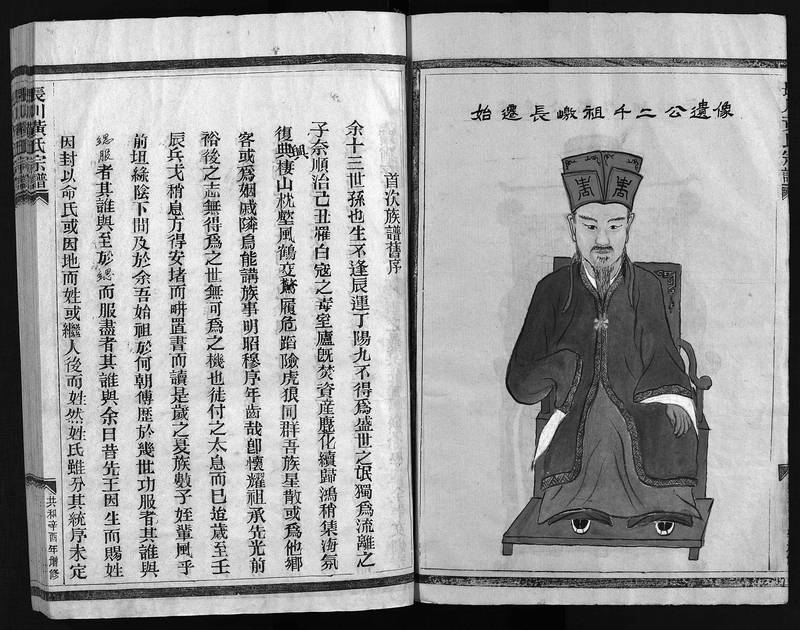 始遷長墩祖千二公遺像
首次族譜舊序
余十三世孫也生不逢辰運丁陽九不得為盛世之氓獨為流離之
子奈順治己丑罹白寇之毒室廬旣焚資産塵化續歸鴻稍集海氛
復興棲山枕壑風鶴交驚履危蹈險虎狼同群吾族星散或為他鄉
興
客或為姻戚隣烏能講族事明昭穆序年齒哉卽懷耀祖承先光前
裕後之志無得為之世無可為之機也徒付之太息而已迨歲至壬
辰兵戈稍息方得安堵而耕置書而讀是歲之夏族數子姪輩風乎
前坦綠陰下間及於余吾始祖於何朝傳歷於幾世功服者其誰與
緦服者其誰與至於緦而服盡者其誰與余曰昔先王因生而賜姓
因封以命氏或因地而姓或繼人後而姓然姓氏雖分其統序未定
長川黃氏宗譜
共和辛酉年增修